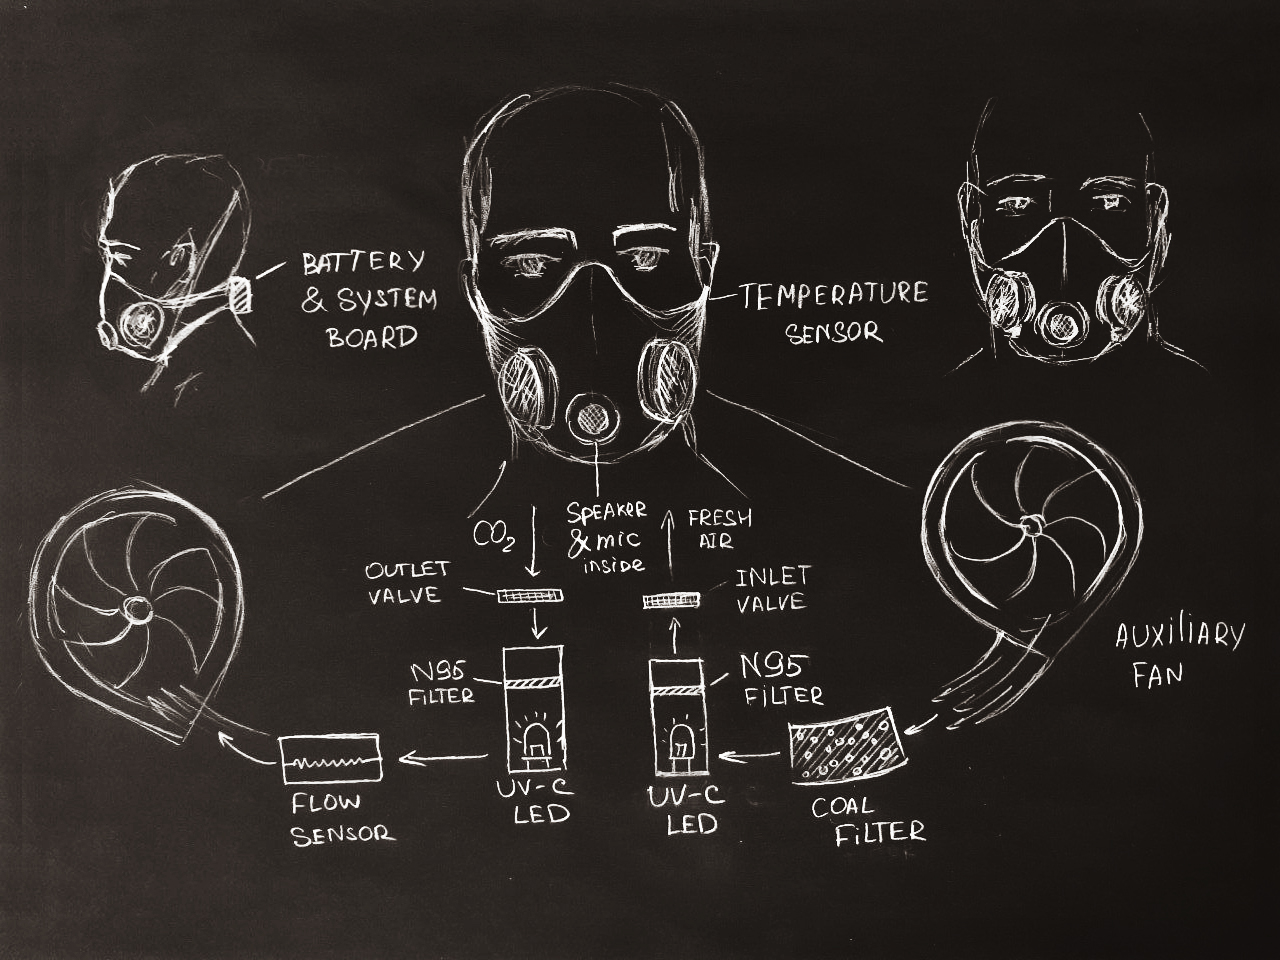 BATTERY
& SYSTEM
BOARD
TEMPERATURE
SENSOR
CO2
SPEAKER
& MIC
INSIDE
FRESH
AIR
OUTLET
VALVE
INLET
VALVE
N95
FILTER
N95
FILTER
AUXILIARY
FAN
FLOW
SENSOR
UV-C
LED
UV-C
LED
COAL
FILTER